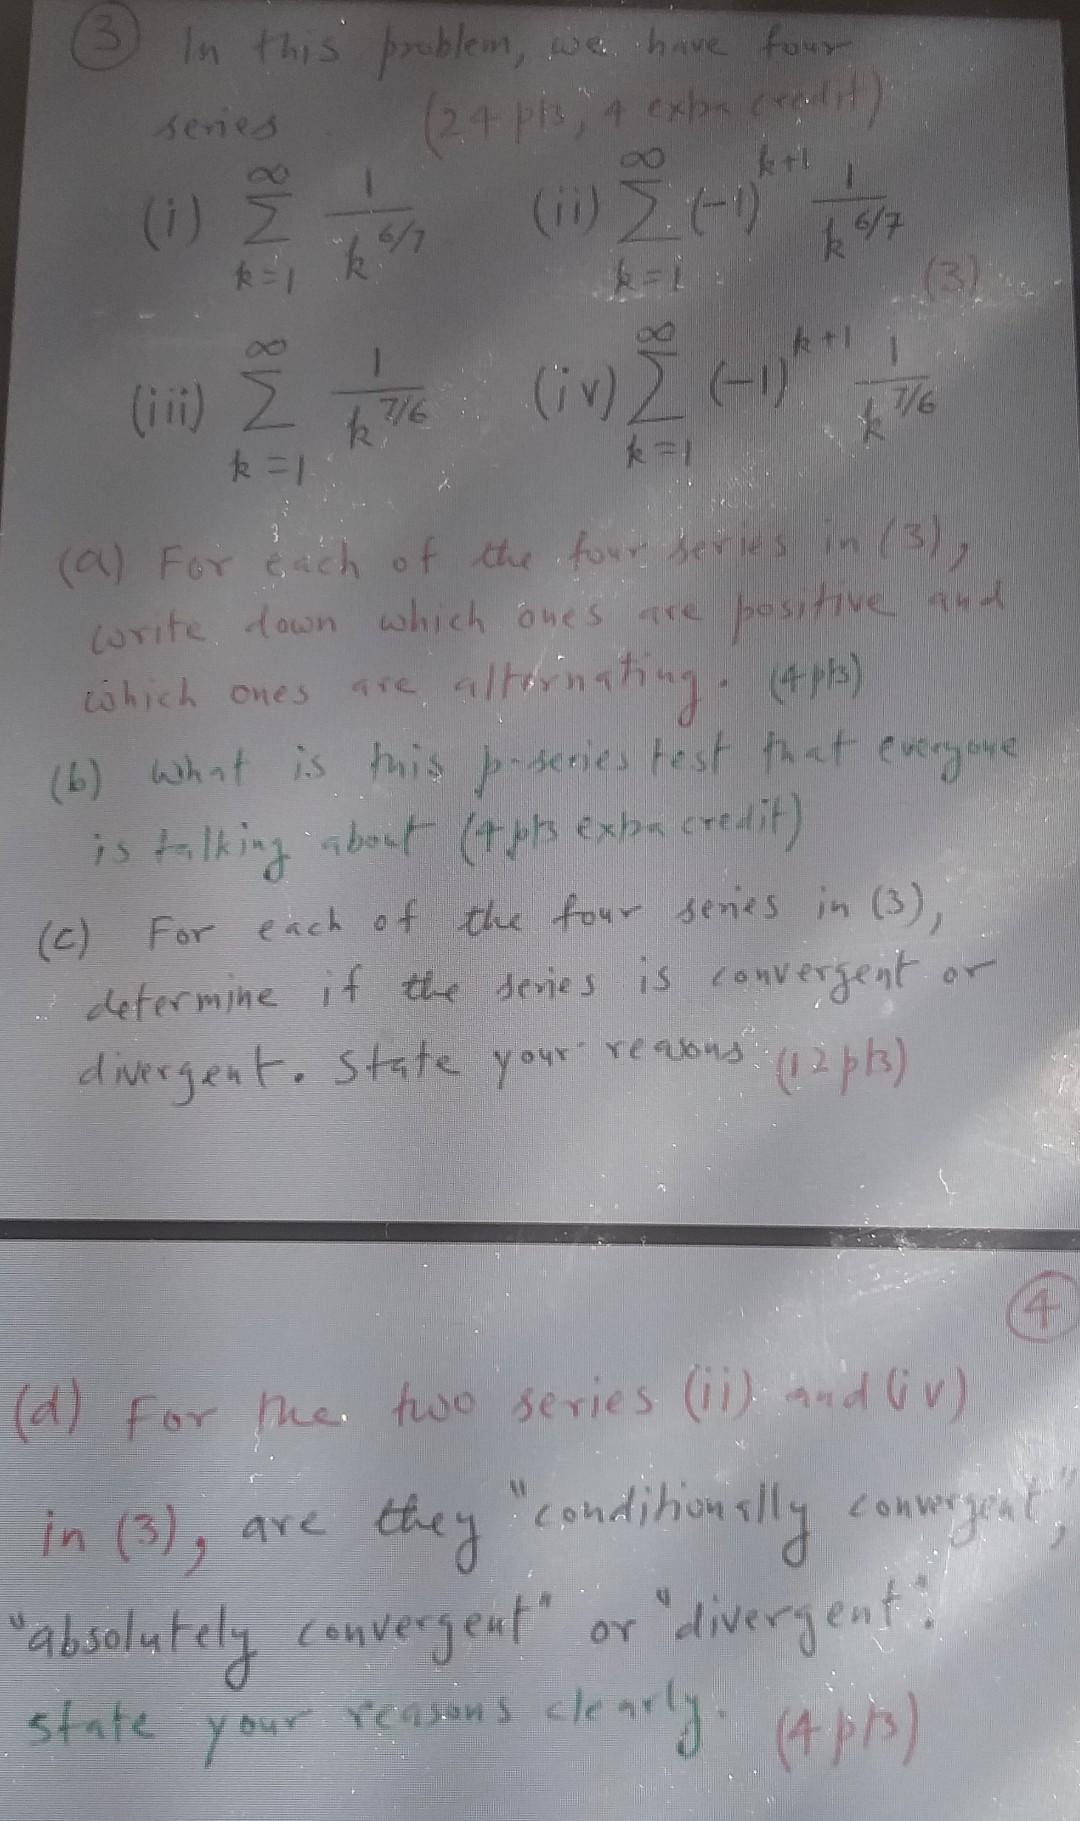 ③ In this problem, we have four
series (24 pts, 4 extra credit)
(i) ∞ Σ k=1 1/k^6/7 (ii) ∞ Σ k=1 (-1)^k+1 1/k^6/7
(3)
(iii) ∞ Σ k=1 1/k^7/6 (iv) ∞ Σ k=1 (-1)^k+1 1/k^7/6
(a) For each of the four series in (3),
write down which ones are positive and
which ones are alternating. (4 pts)
(b) What is this p-series test that everyone
is talking about (4 pts extra credit)
(c) For each of the four series in (3),
determine if the series is convergent or
divergent. State your reasons (12 pts)
④
(d) For the two series (ii) and (iv)
in (3), are they "conditionally convergent",
"absolutely convergent" or "divergent".
state your reasons clearly. (4 pts)